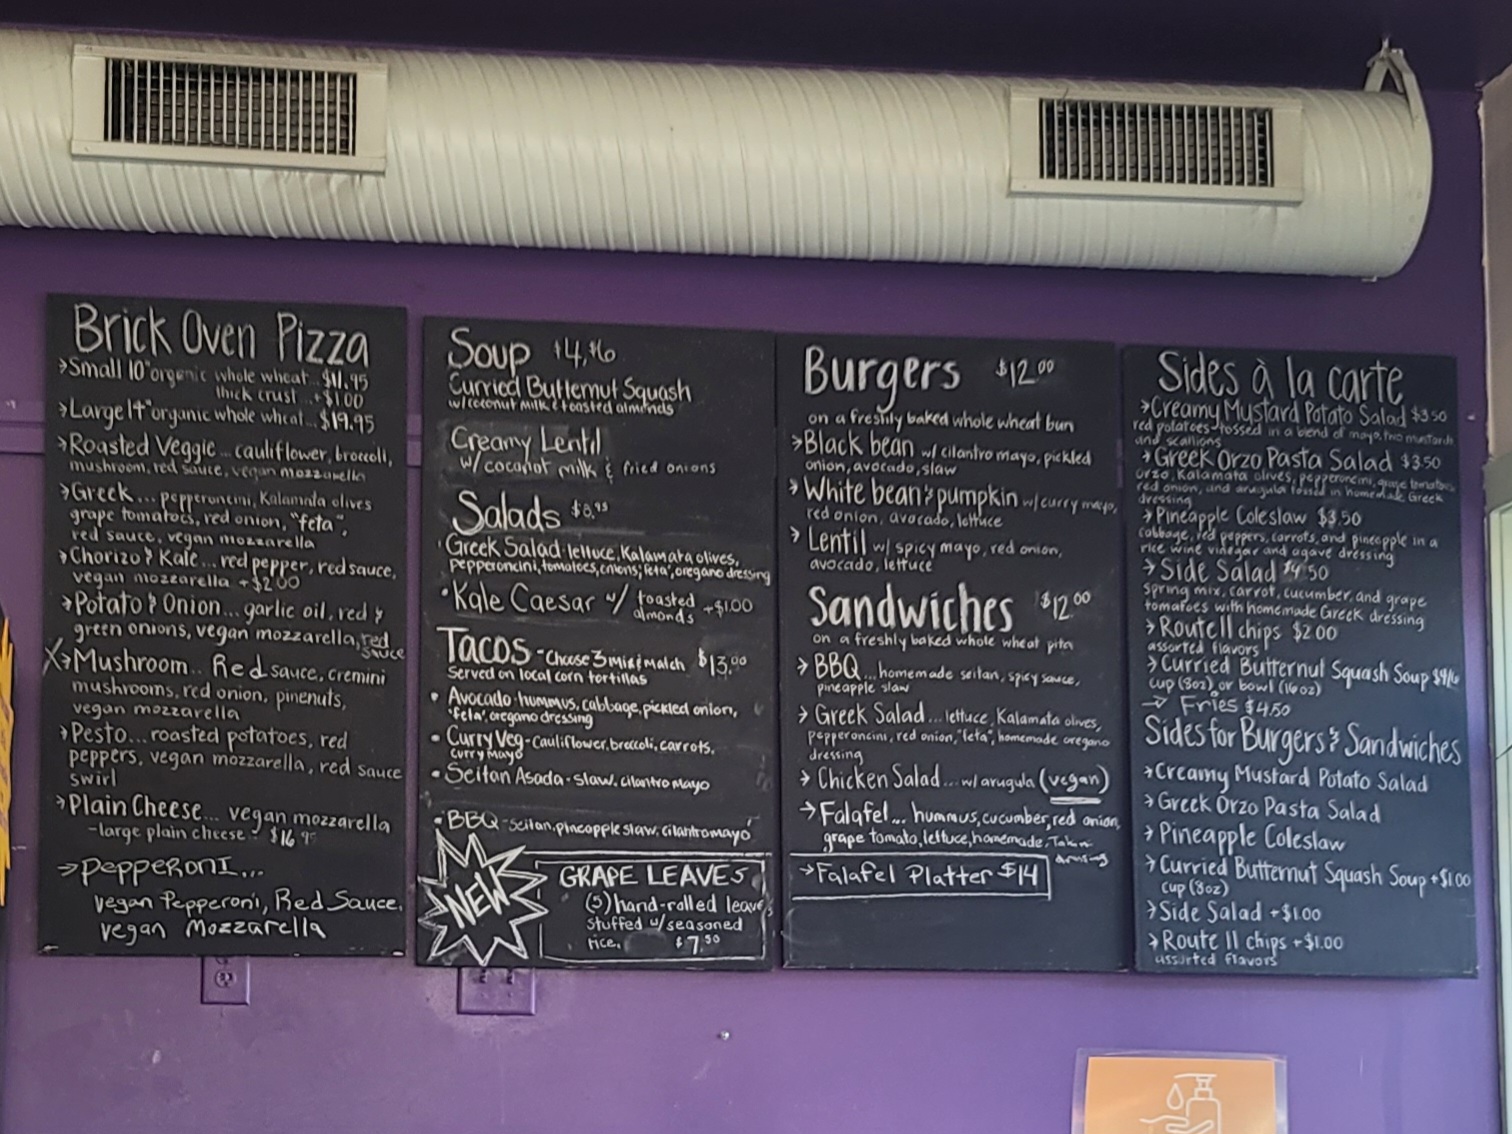 Brick Oven Pizza
→Small 10" organic whole wheat... $11.95
thick crust...+$1.00
→Large 14" organic whole wheat... $19.95
→Roasted Veggie... cauliflower, broccoli,
mushroom, red sauce, vegan mozzarella
→Greek... pepperoncini, Kalamata olives
grape tomatoes, red onion, "feta",
red sauce, vegan mozzarella
→Chorizo & Kale... red pepper, red sauce,
vegan mozzarella +$2.00
→Potato & Onion... garlic oil, red &
green onions, vegan mozzarella, red
sauce
X→Mushroom... Red sauce, cremini
mushrooms, red onion, pinenuts,
vegan mozzarella
→Pesto... roasted potatoes, red
peppers, vegan mozzarella, red sauce
swirl
→Plain Cheese... vegan mozzarella
-large plain cheese - $16.95
→Pepperoni...
vegan Pepperoni, Red Sauce,
vegan Mozzarella
Soup $4, $6
Curried Butternut Squash
w/coconut milk & toasted almonds
Creamy Lentil
w/ coconut milk & fried onions
Salads $8.95
Greek Salad-lettuce, Kalamata olives,
pepperoncini, tomatoes, onions, "feta", oregano dressing
•Kale Caesar w/ toasted
almonds +$1.00
Tacos -Choose 3 mix & match $13.00
Served on local corn tortillas
• Avocado-hummus, cabbage, pickled onion,
"feta", oregano dressing
• Curry Veg-cauliflower, broccoli, carrots,
curry mayo
• Seitan Asada - slaw, cilantro mayo
• BBQ - seitan, pineapple slaw, cilantro mayo
NEW
GRAPE LEAVES
(5) hand-rolled leaves
stuffed w/ seasoned
rice. $7.50
Burgers $12.00
on a freshly baked whole wheat bun
→Black bean w/ cilantro mayo, pickled
onion, avocado, slaw
→White bean & pumpkin w/ curry mayo,
red onion, avocado, lettuce
→Lentil w/ spicy mayo, red onion,
avocado, lettuce
Sandwiches $12.00
on a freshly baked whole wheat pita
→BBQ... homemade seitan, spicy sauce,
pineapple slaw
→Greek Salad... lettuce, Kalamata olives,
pepperoncini, red onion, "feta", homemade oregano
dressing
→Chicken Salad... w/ arugula (vegan)
→Falafel... hummus, cucumber, red onion,
grape tomato, lettuce, homemade
dressing
→Falafel Platter $14
Sides à la carte
→Creamy Mustard Potato Salad $3.50
red potatoes tossed in a blend of mayo, two mustards
and scallions
→Greek Orzo Pasta Salad $3.50
orzo, Kalamata olives, pepperoncini, grape tomatoes,
red onion, and arugula tossed in homemade Greek
dressing
→Pineapple Coleslaw $3.50
cabbage, red peppers, carrots, and pineapple in a
rice wine vinegar and agave dressing
→Side Salad $4.50
Spring mix, carrot, cucumber, and grape
tomatoes with homemade Greek dressing
→Route 11 chips $2.00
assorted flavors
→Curried Butternut Squash Soup $4/6
cup (8oz) or bowl (16oz)
→ Fries $4.50
Sides for Burgers & Sandwiches
→Creamy Mustard Potato Salad
→Greek Orzo Pasta Salad
→Pineapple Coleslaw
→Curried Butternut Squash Soup +$1.00
cup (8oz)
→Side Salad +$1.00
→Route 11 chips +$1.00
assorted flavors